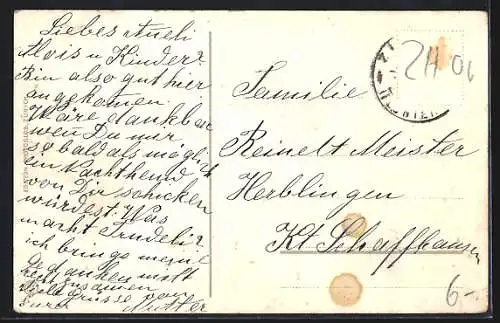 Liebes Anneli
Alois u Kinder?
Bin also gut hier
angekommen
Wäre dankbar
wen Du mir
so bald als möglich
ein Nachthemd
von Dir schicken
würdest. Was
macht Trudeli?
ich bringe
Gedanken
Grüsse von
Mutter
Familie
Reinelt Meister
Herblingen
Kt Schaffhausen
ZH 06
6-